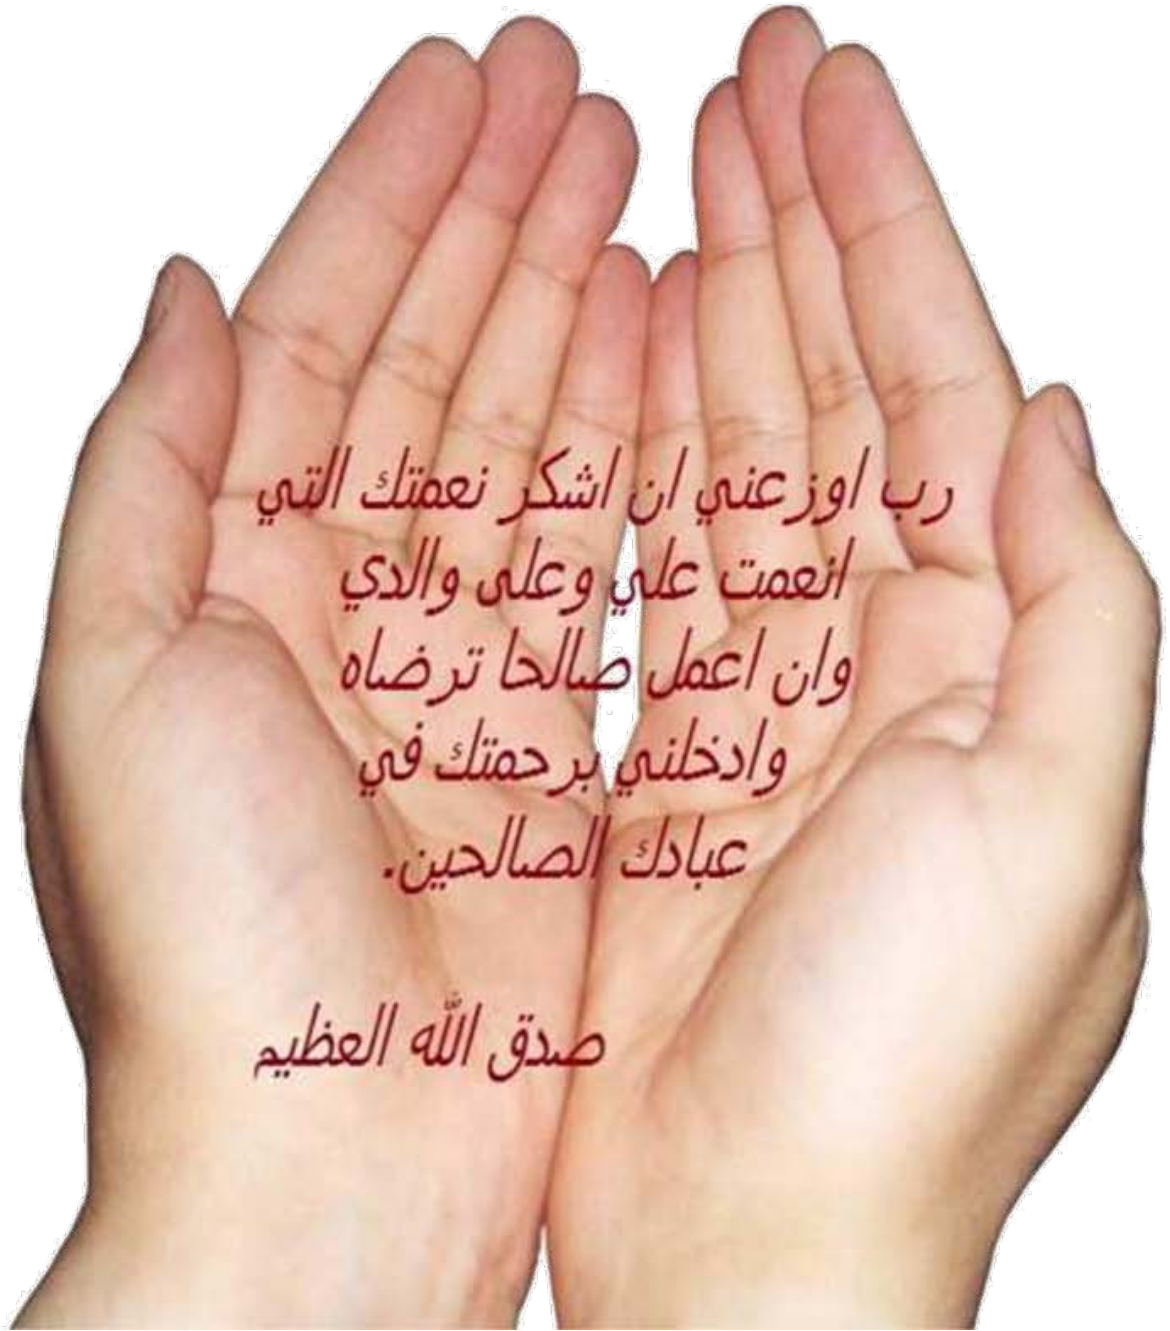 رب اوزعني ان اشكر نعمتك التي
انعمت علي وعلى والدي
وان اعمل صالحا ترضاه
وادخلني برحمتك في
عبادك الصالحين.
صدق الله العظيم